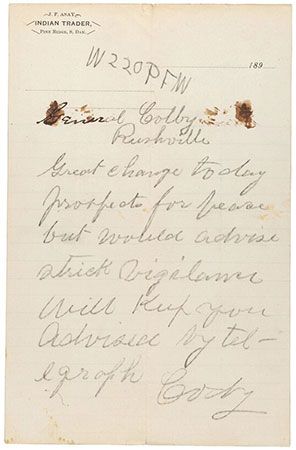 J. F. ASAY,
INDIAN TRADER,
PINE RIDGE, S. DAK.
189
General Colby
Rushville
Great change today
prospects for peace
but would advise
strick vigilance
Will Keep you
Advised by tel-
egraph